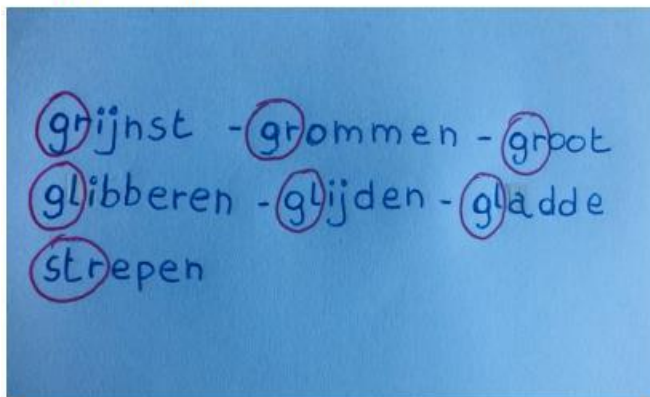 grijnst - grommen - groot
glibberen - glijden - gladde
strepen